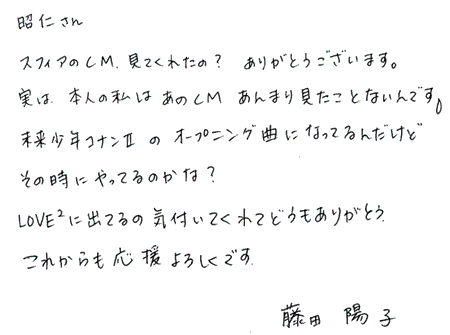 昭仁さん
スフィアのCM、見てくれたの？ ありがとうございます。
実は、本人の私はあのCM あんまり見たことないんです。
未来少年コナンⅡ の オープニング曲になってるんだけど
その時にやってるのかな？
LOVE²に出てるの気付いてくれてどうもありがとう。
これからも応援よろしくです。
藤田 陽子